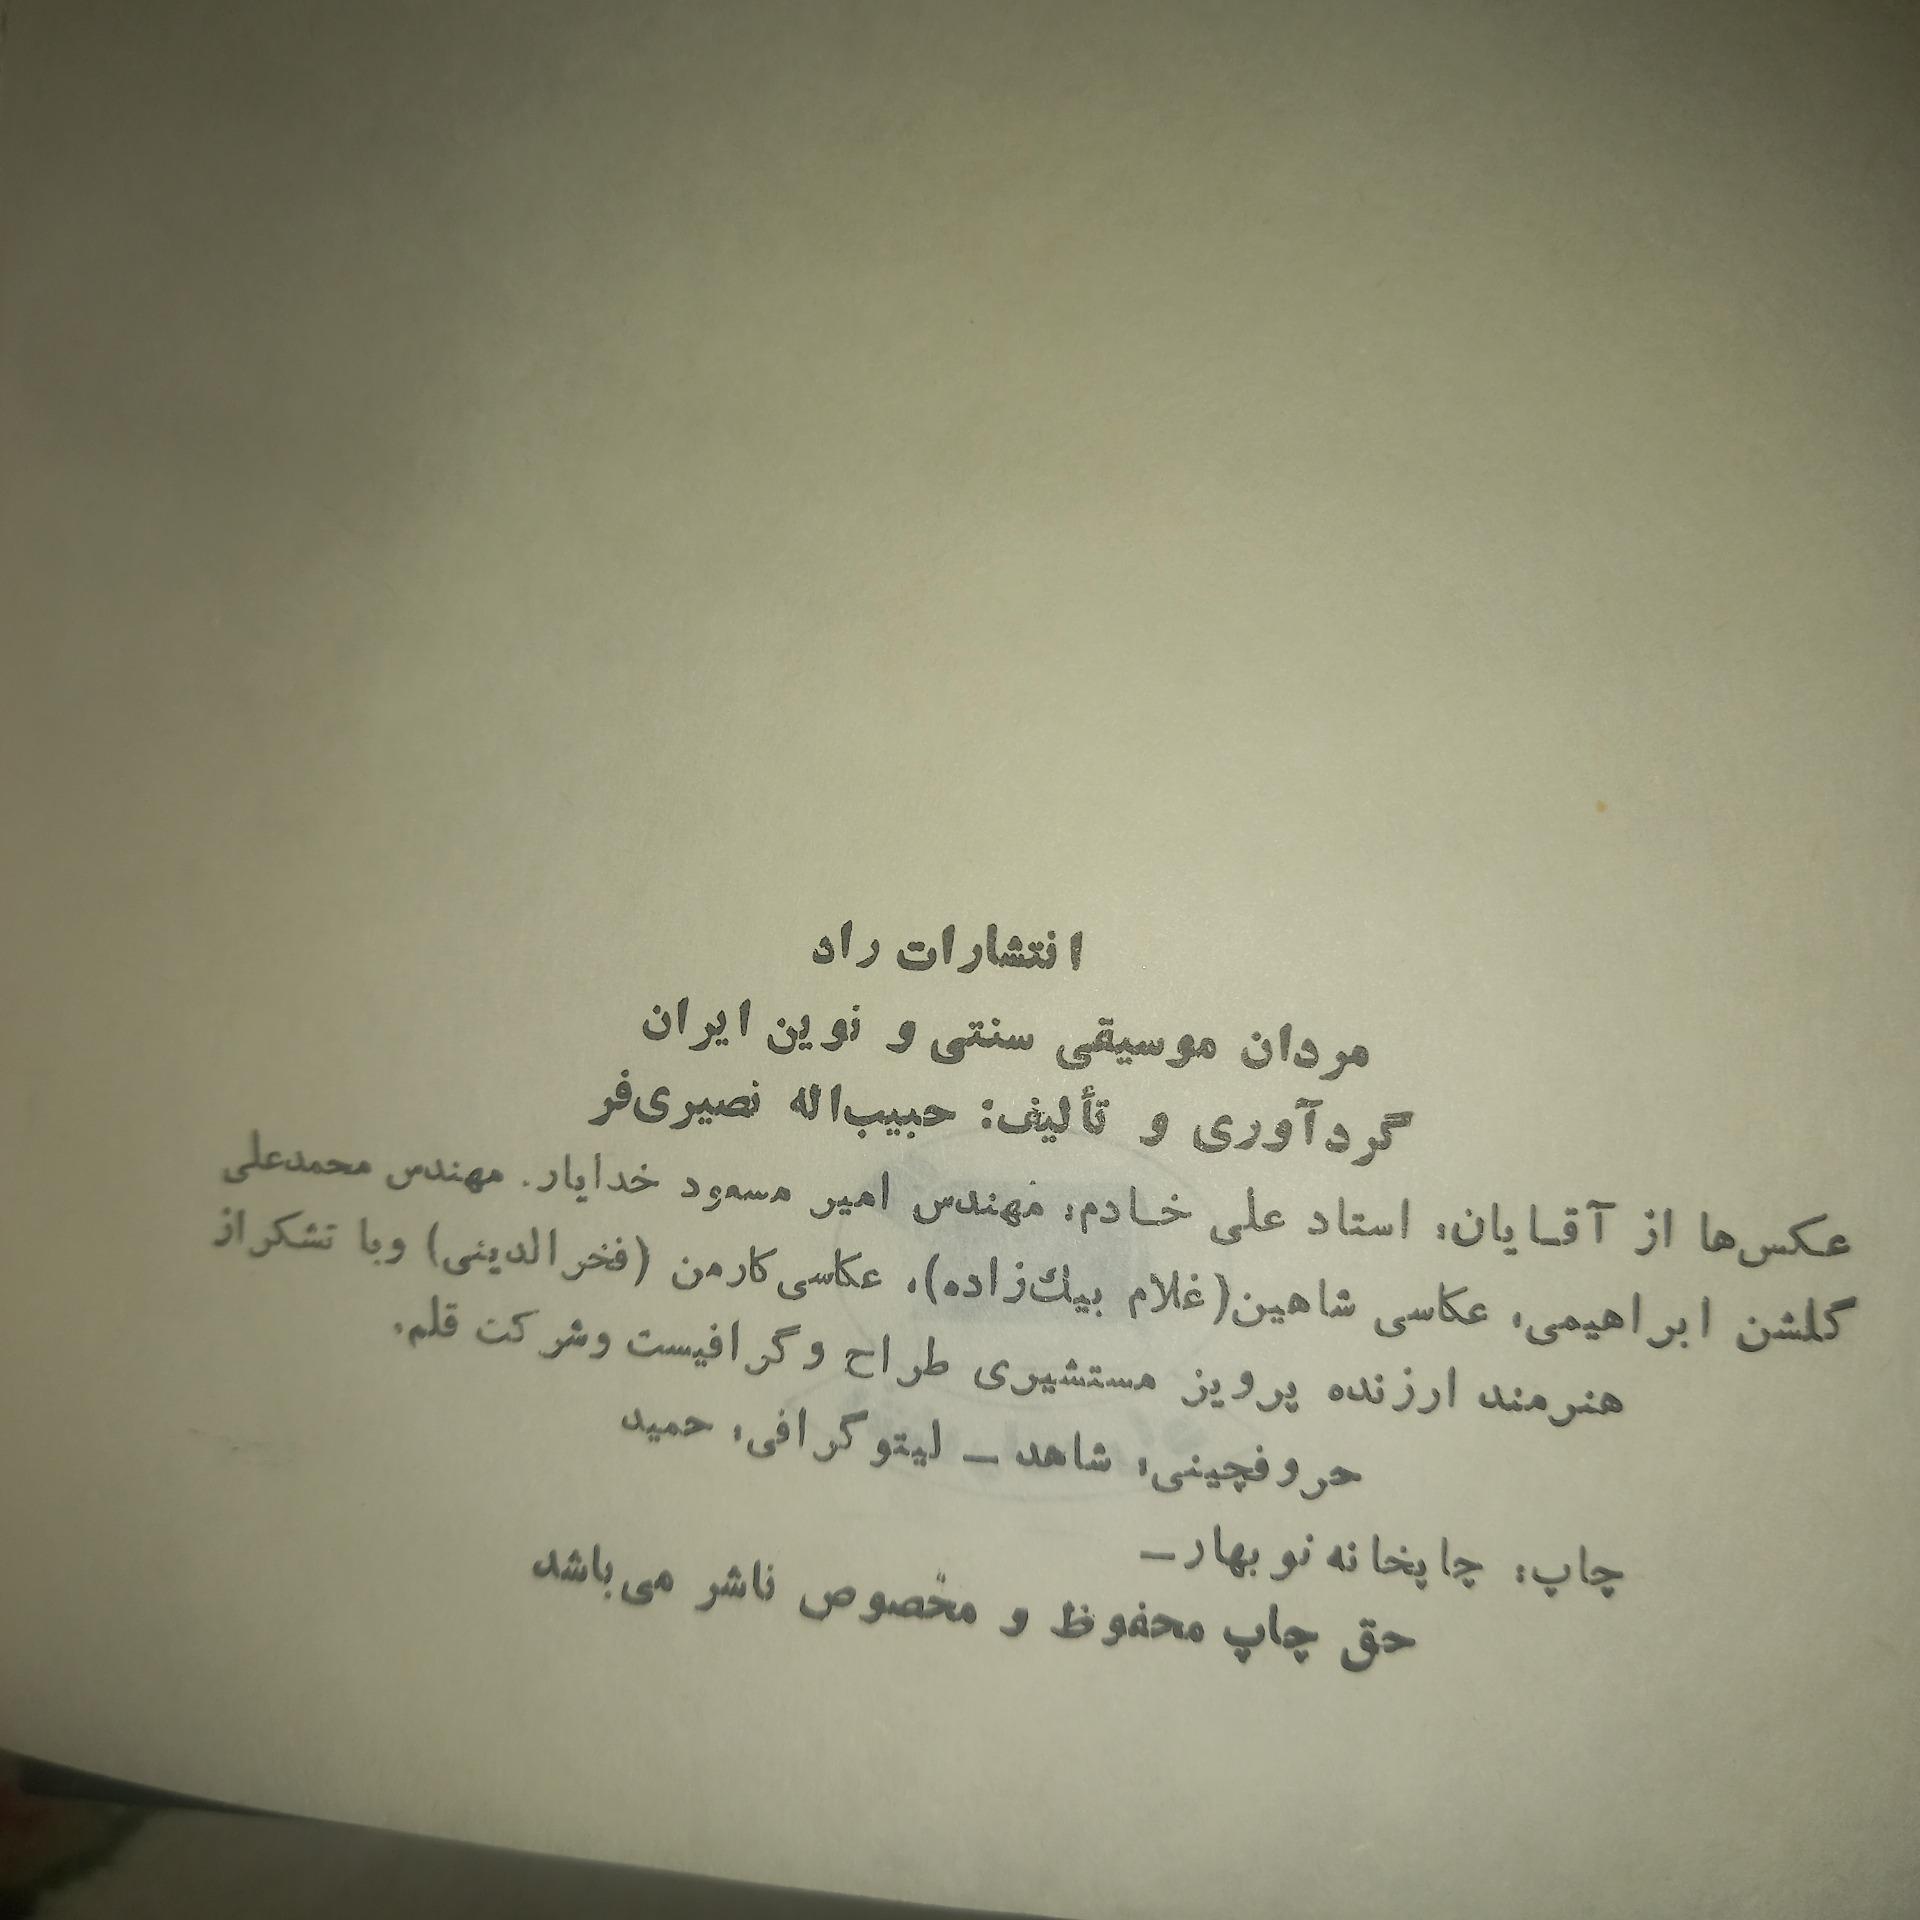 انتشارات راد
مردان موسیقی سنتی و نوین ایران
گردآوری و تألیف: حبیب‌اله نصیری‌فر
عکس‌ها از آقایان: استاد علی خادم، مهندس امیر مسعود خدایار. مهندس محمدعلی
گلشن ابراهیمی، عکاسی شاهین(غلام بیك‌زاده)، عکاسی‌کارمن (فخرالدینی) وبا تشکراز
هنرمند ارزنده پرویز مستشیری طراح و گرافیست وشرکت قلم.
حروفچینی: شاهد — لیتوگرافی: حمید
چاپ: چاپخانه نوبهار—
حق چاپ محفوظ و مخصوص ناشر می‌باشد